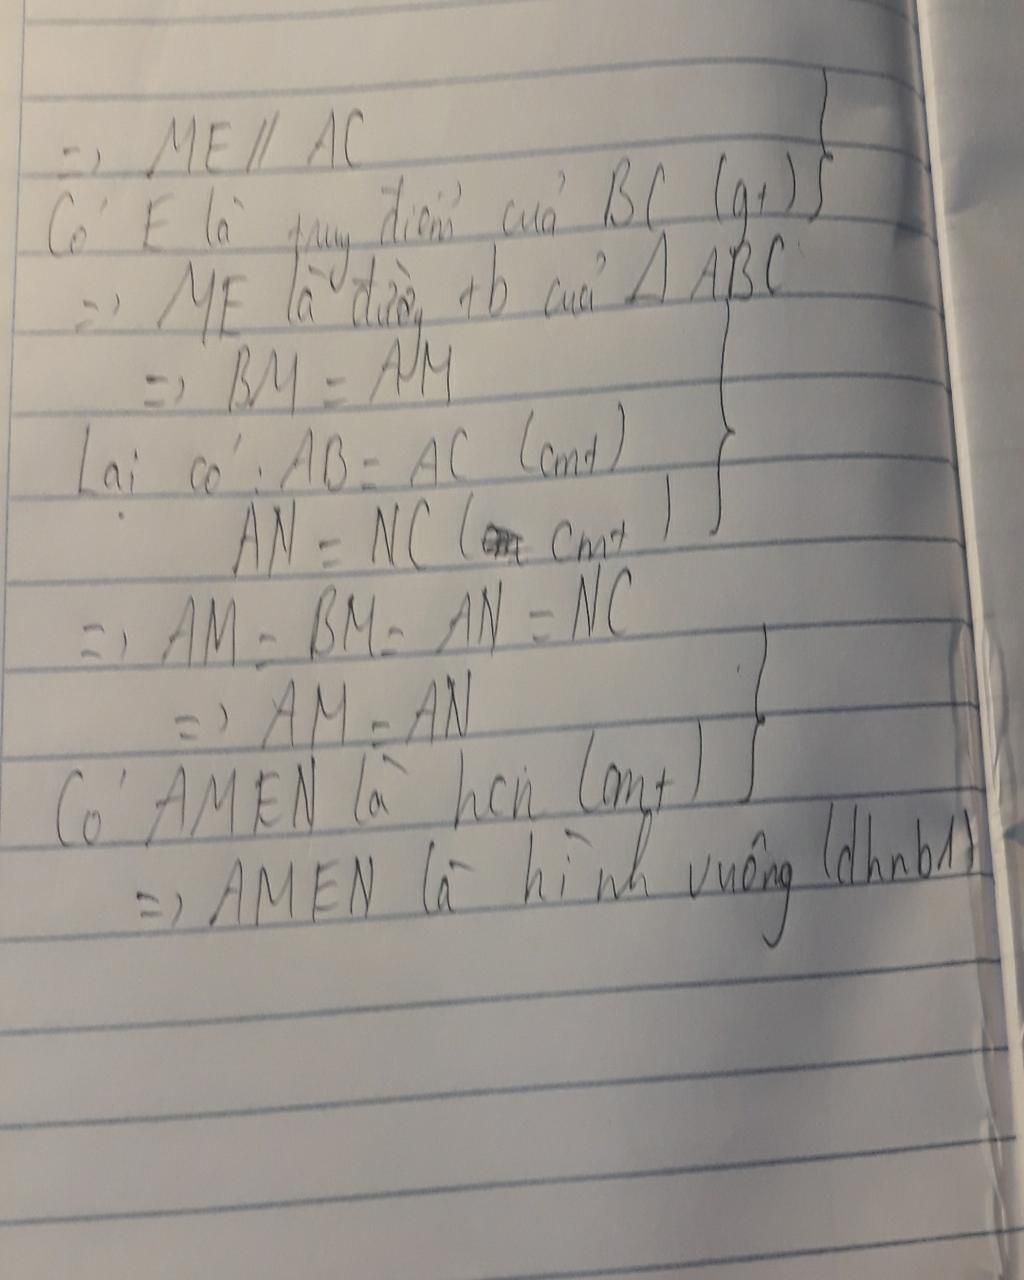 => ME // AC
Có E là trung điểm của BC (gt)
=> ME là đường tb của Δ ABC
=> BM = AM
Lại có : AB = AC (cmt)
AN = NC ( cmt )
=> AM = BM = AN = NC
=> AM = AN
Có AMEN là hcn (cmt)
=> AMEN là hình vuông (dhnb1)